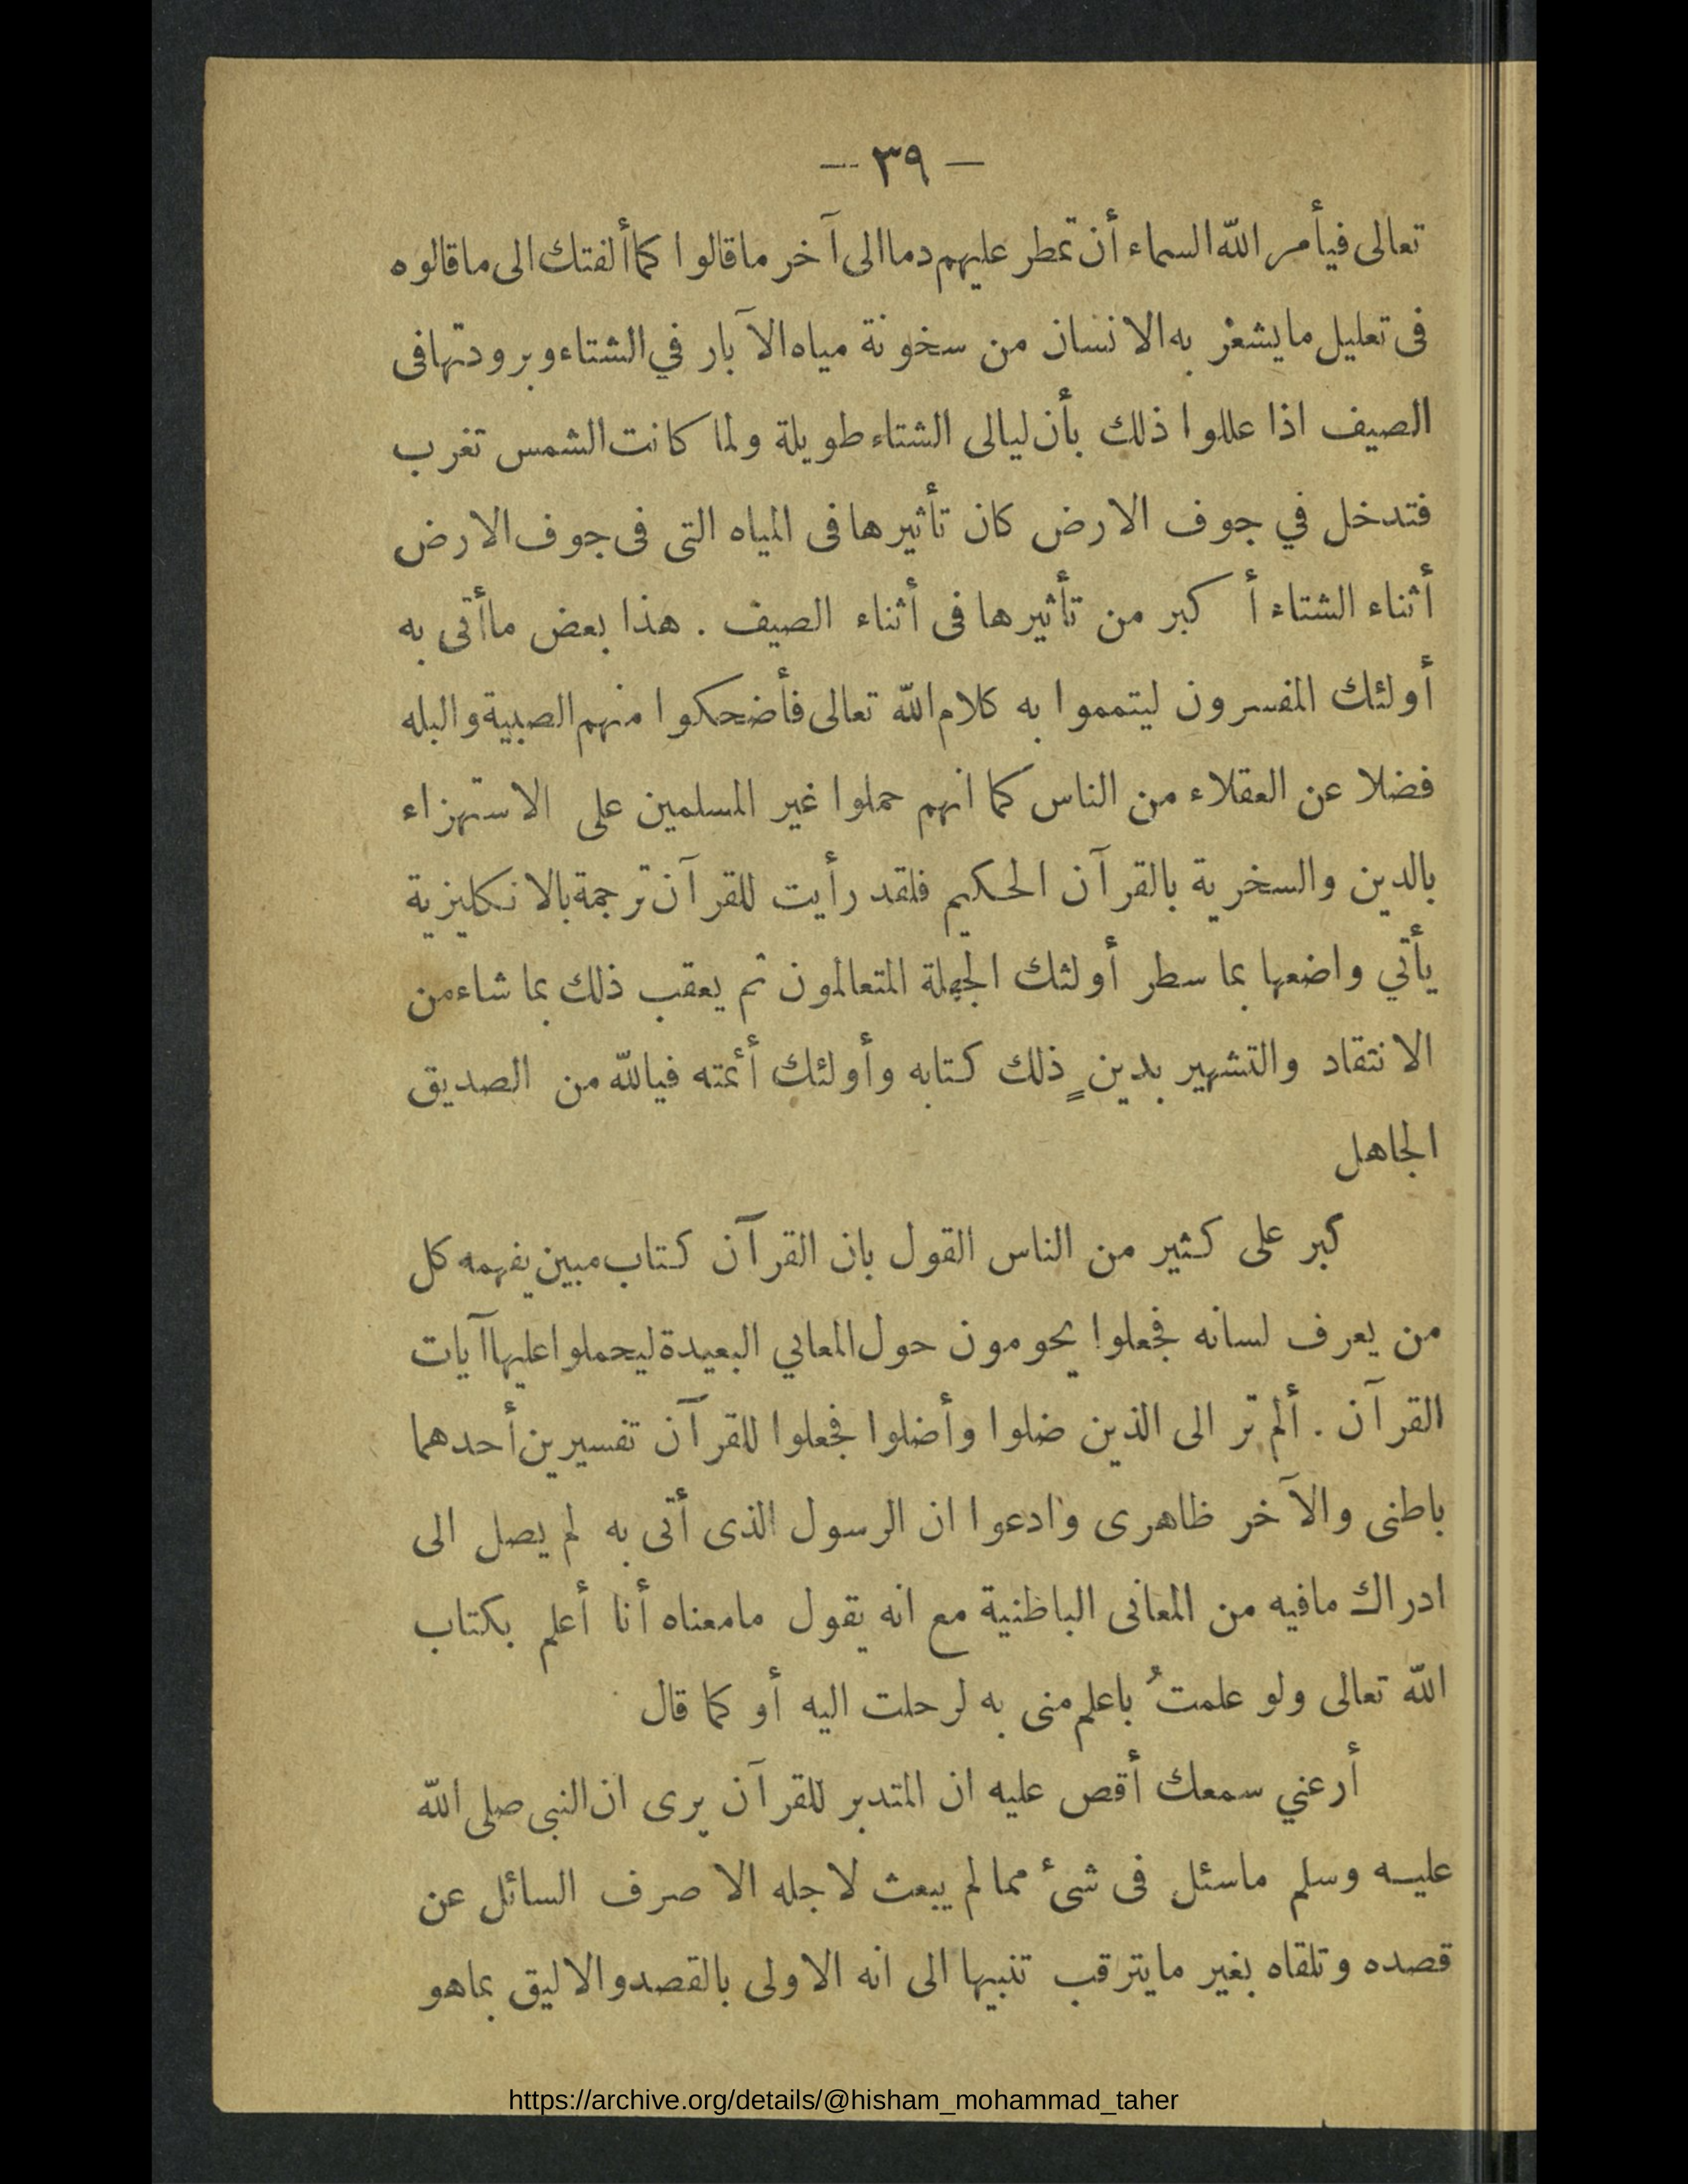 — ٣٩ —
تعالى فيأمر الله السماء أن تمطر عليهم دما الى آخر ماقالوا كما ألفتك الى ماقالوه
فى تعليل مايشعر به الانسان من سخونة مياه الآبار في الشتاء وبرودتها فى
الصيف اذا عللوا ذلك بأن ليالى الشتاء طويلة ولما كانت الشمس تغرب
فتدخل في جوف الارض كان تأثيرها فى المياه التى فى جوف الارض
أثناء الشتاء أكبر من تأثيرها فى أثناء الصيف . هذا بعض ماأتى به
أولئك المفسرون ليتمموا به كلام الله تعالى فأضحكوا منهم الصبية والبله
فضلا عن العقلاء من الناس كما انهم حملوا غير المسلمين على الاستهزاء
بالدين والسخرية بالقرآن الحكيم فلقد رأيت للقرآن ترجمة بالانكليزية
يأتي واضعها بما سطر أولئك الجهلة المتعالمون ثم يعقب ذلك بما شاء من
الانتقاد والتشهير بدينٍ ذلك كتابه وأولئك أئمته فيالله من الصديق
الجاهل
كبر على كثير من الناس القول بان القرآن كتاب مبين يفهمه كل
من يعرف لسانه فجعلوا يحومون حول المعاني البعيدة ليحملوا عليها آيات
القرآن . ألم تر الى الذين ضلوا وأضلوا فجعلوا للقرآن تفسيرين أحدهما
باطنى والآخر ظاهرى وادعوا ان الرسول الذى أتى به لم يصل الى
ادراك مافيه من المعانى الباطنية مع انه يقول مامعناه أنا أعلم بكتاب
الله تعالى ولو علمتُ باعلم منى به لرحلت اليه أو كما قال
أرعني سمعك أقص عليه ان المتدبر للقرآن يرى ان النبى صلى الله
عليه وسلم ماسئل فى شئ مما لم يبعث لاجله الا صرف السائل عن
قصده وتلقاه بغير مايترقب تنبيها الى انه الاولى بالقصد والاليق بماهو
https://archive.org/details/@hisham_mohammad_taher